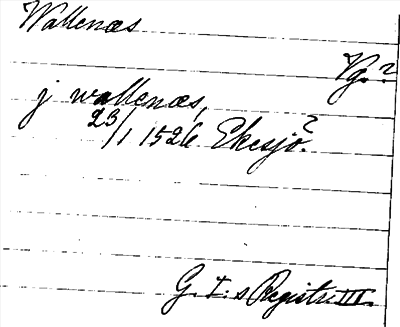 Wallenæs
Vg.?
j wallenæs,
23/1 1526 Ekesjö?
G. I:s Registr. III.